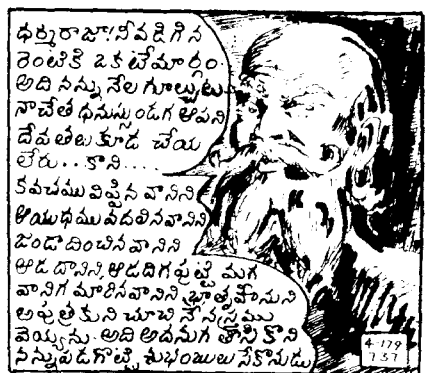 ధర్మరాజా! నీవడిగిన
రెంటికి ఒకటే మార్గం.
అది నన్ను నేల గూల్చుట
నాచేత ధనుస్సుండగ ఆపని
దేవతలు కూడ చేయ
లేరు.. కాని....
కవచము విప్పిన వానిని
ఆయుధము వదలినవానిని
జండా దించిన వానిని
ఆడ దానిని, ఆడదిగ పుట్టి మగ
వానిగ మారినవానిని భ్రాతృహీనుని
అపుత్రకుని చూచి నేనస్త్రము
వెయ్యను. అది అదనుగ తీసికొని
నన్ను పడగొట్టి శుభంబులు సేకొనుడు
4-179
737